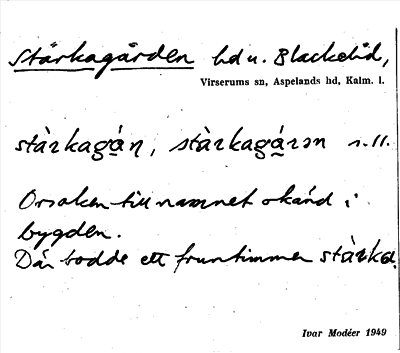 Stärkagården hd u. Blackelid,
Virserums sn, Aspelands hd, Kalm. l.
stàrkagá̱ṇ, stàrkagá̱rən s. ll.
Orsaken till namnet okänd i
bygden.
Där bodde ett fruntimmer stàrka.
Ivar Modéer 1949